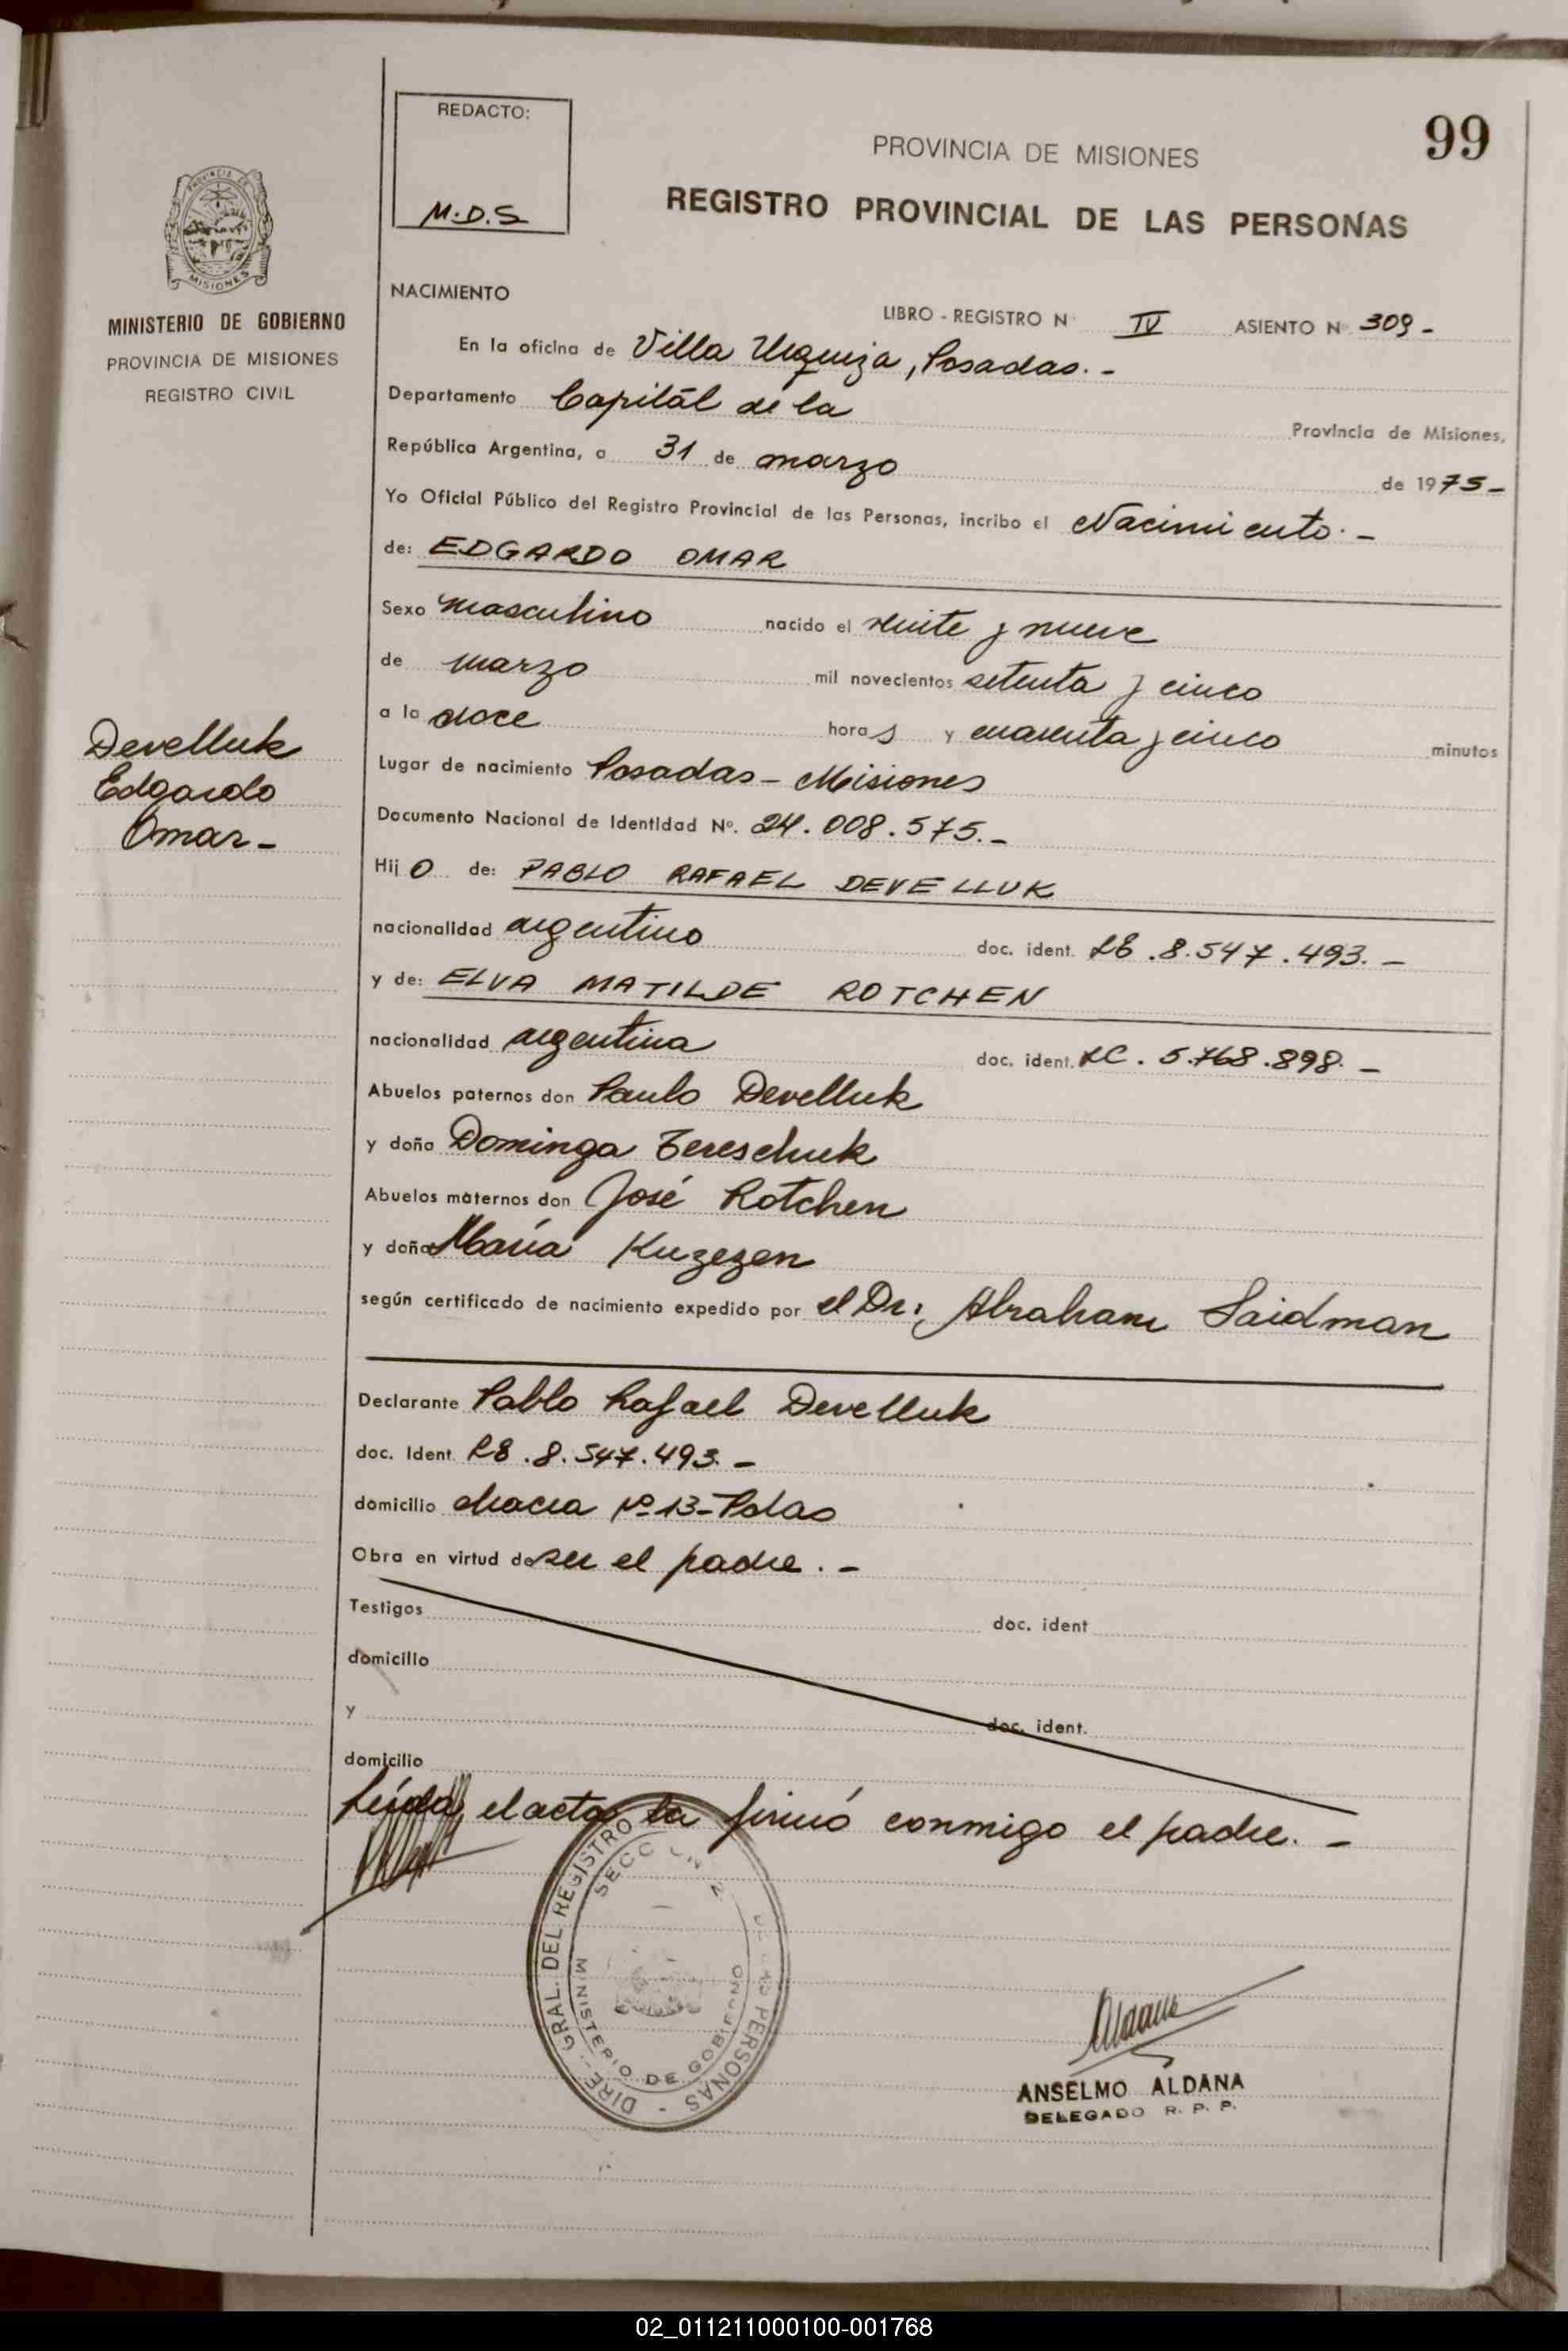 REDACTO:
M.D.S
99
PROVINCIA DE MISIONES
REGISTRO PROVINCIAL DE LAS PERSONAS
PROVINCIA DE
MISIONES
MINISTERIO DE GOBIERNO
PROVINCIA DE MISIONES
REGISTRO CIVIL
NACIMIENTO
LIBRO - REGISTRO N IV ASIENTO Nº 309 -
En la oficina de Villa Urquiza, Posadas. -
Departamento Capitál de la Provincia de Misiones,
República Argentina, a 31 de marzo de 1975 -
Yo Oficial Público del Registro Provincial de las Personas, incribo el Nacimiento. -
de: EDGARDO OMAR
Sexo masculino nacido el veinte y nueve
de marzo mil novecientos setenta y cinco
a la doce horas y cuarenta y cinco minutos
Lugar de nacimiento Posadas - Misiones
Documento Nacional de Identidad Nº. 24.008.575. -
Hijo de: PABLO RAFAEL DEVELLUK
nacionalidad argentino doc. ident. LE. 8.547.493. -
y de: ELVA MATILDE ROTCHEN
nacionalidad argentina doc. ident. LC. 5.768.898. -
Abuelos paternos don Paulo Develluk
y doña Dominga Tereschuk
Abuelos maternos don José Rotchen
y doña María Kuzezen
según certificado de nacimiento expedido por el Dr: Abraham Saidman
Develluk
Edgardo
Omar -
Declarante Pablo Rafael Develluk
doc. Ident. LE. 8.547.493. -
domicilio chacra Nº 13 - Pdas
Obra en virtud de ser el padre. -
Testigos doc. ident
domicilio
y doc. ident.
domicilio
Leída el acta la firmó conmigo el padre. -
DIRE. GRAL. DEL REGISTRO DE LAS PERSONAS -
MINISTERIO DE GOBIERNO
Aldana
ANSELMO ALDANA
DELEGADO R. P. P.
02_011211000100-001768